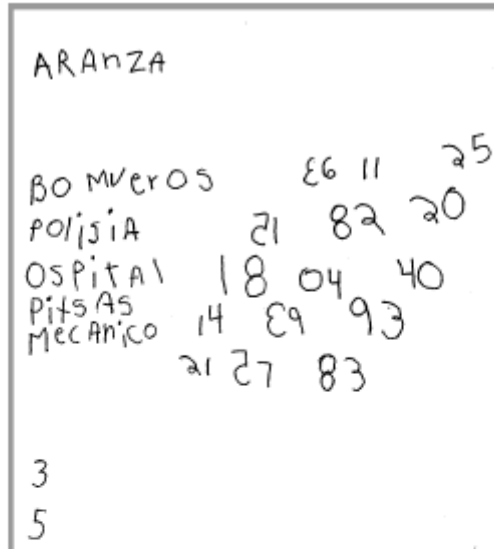 ARAnZA
BOMVerOS 39 11 25
POlisiA 51 82 20
OSPitAl 18 04 40
PitsAS 14 39 93
MecAnico 21 57 83
3
5